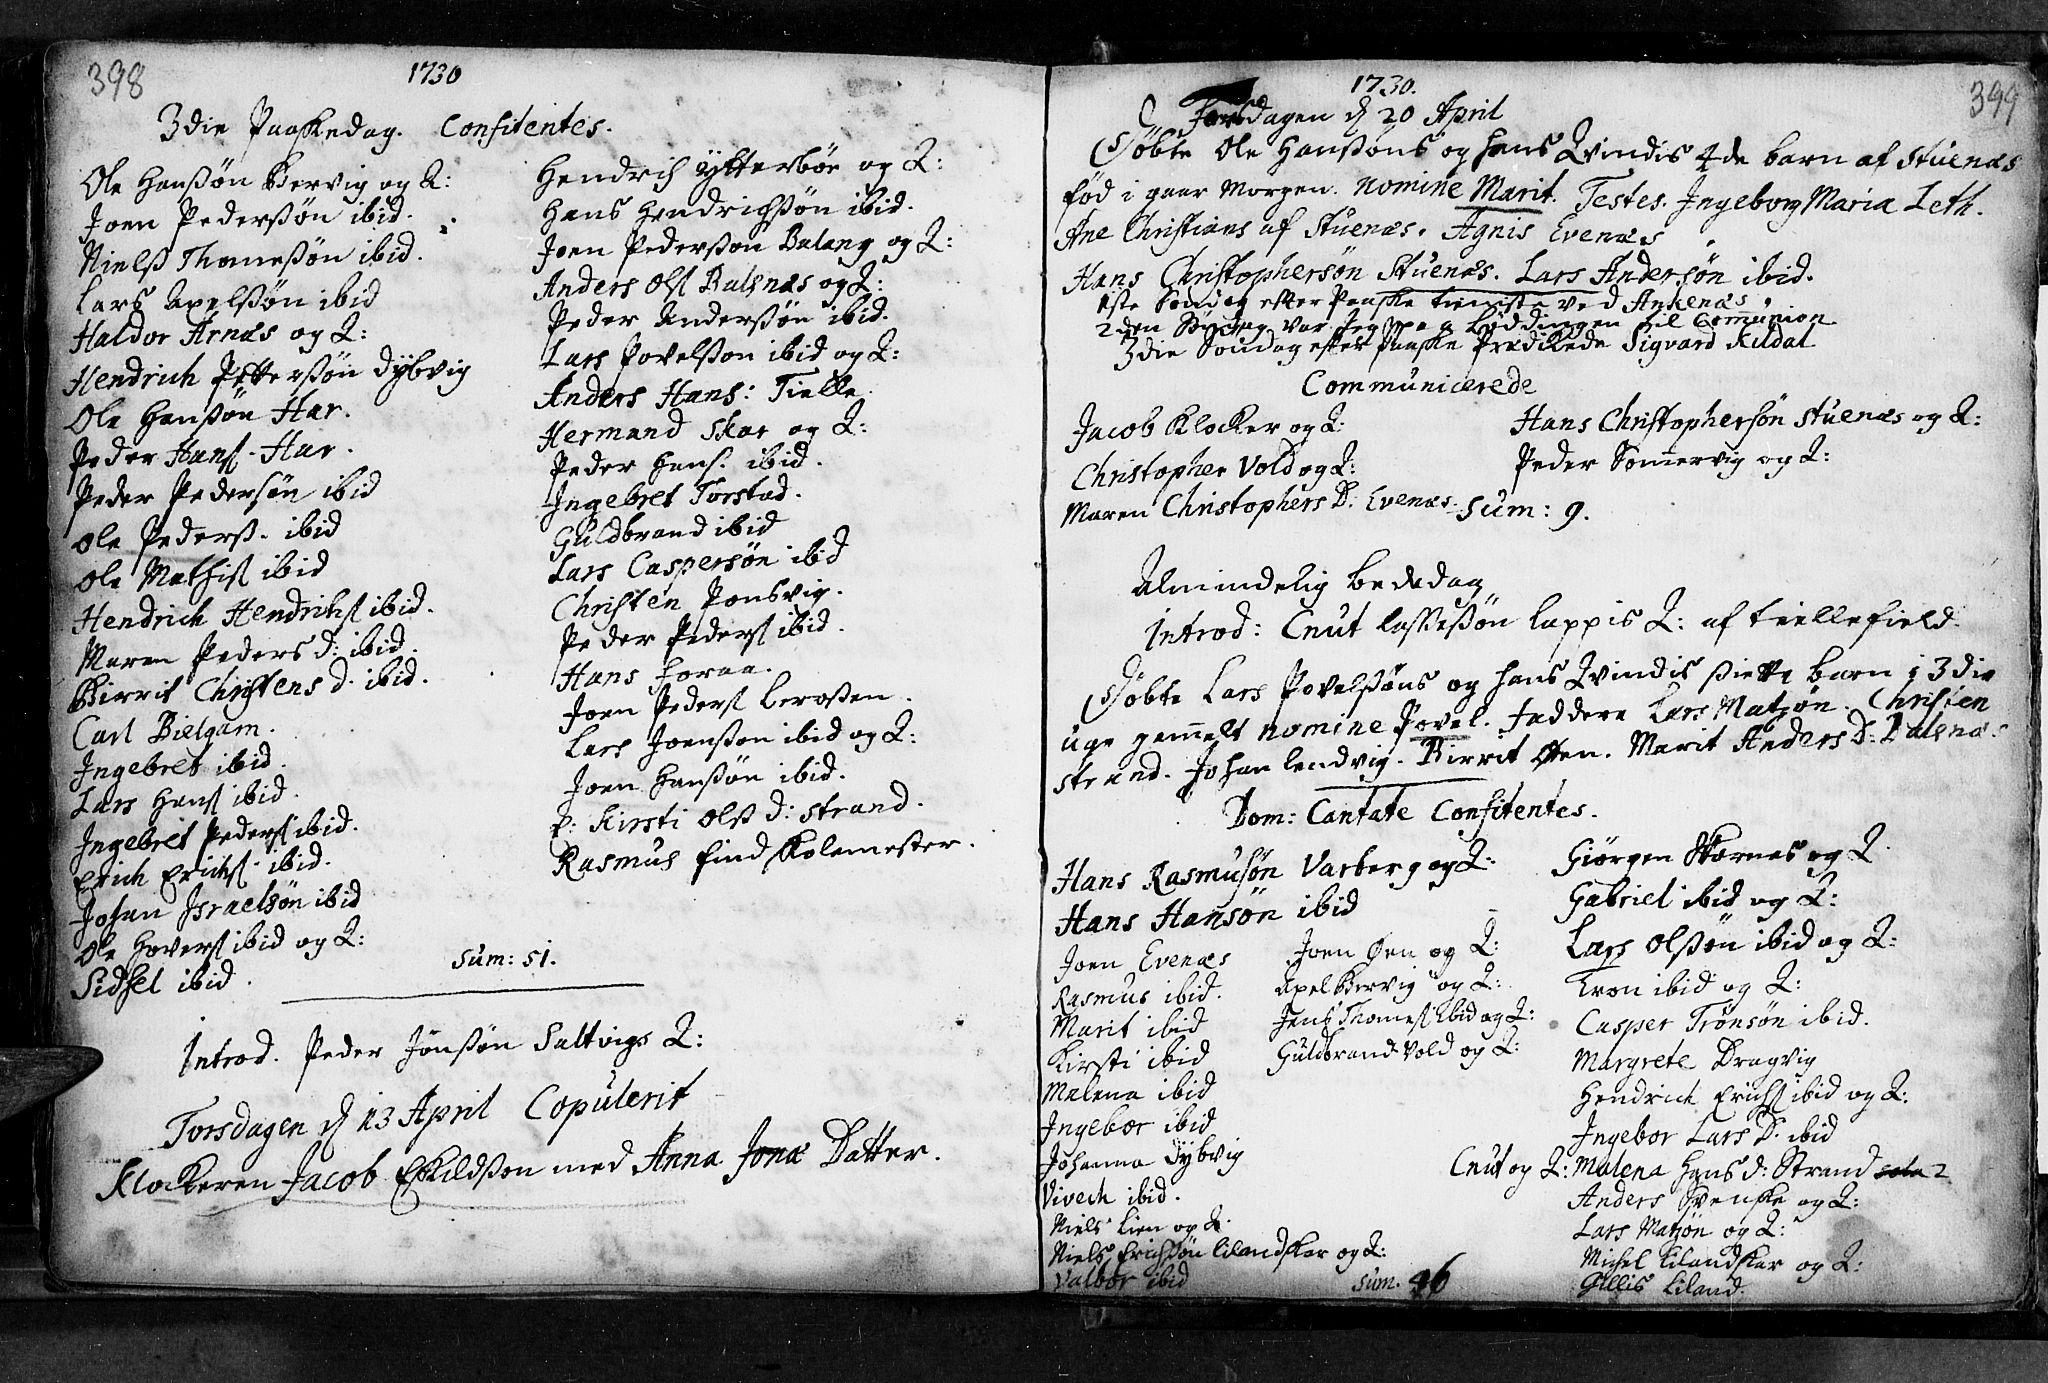 398
1730
3die Paaskedag. Confitentes.
Ole Hanssøn Bervig og Q:
Joen Pederssøn ibid.
Nielss Thomessøn ibid.
Lars Axelssøn ibid
Haldor Årnæs og Q:
Hendrich Petterssøn Dÿbvig
Ole Hanssøn Har.
Peder Hans. Har.
Peder Pedersøn ibid
Ole Pederss. ibid
Ole Mathis ibid
Hendrich Hendrichs ibid.
Maren Peders d: ibid.
Birrit Christens d. ibid.
Carl Bielgam.
Ingebret ibid.
Lars Hans ibid.
Ingebret Peders ibid.
Erich Erichs. ibid.
Johan Israelsøn ibid
Ole Havers ibid og Q:
Sidsel ibid.
Hendrich Ÿtterbør og Q:
Hans Hendrichssøn ibid.
Joen Pedersson Balang og Q:
Anders Ols Balsnæs og Q:
Peder Anderssøn ibid.
Lars Povelsson ibid og Q:
Anders Hans: Tielle
Hermand Skar og Q:
Peder Hans. ibid.
Ingebret Torstad.
Guldbrand ibid
Lars Caspersøn ibid
Christen Ponsvig.
Peder Peders ibid.
Hans Foraa.
Joen Peders Lerossen.
Lars Joensson ibid og Q:
Joen Hanssøn ibid.
P: Kirsti Olss d: Strand.
Rasmus Find Skolemester.
Sum: 51.
Introd. Peder Jönssøn Saltvigs Q:
Torsdagen d 13 April Copulerit
Klockeren Jacob Eskildsson med Anna Jonæ Datter.
399
1730.
dagen d 20 April
Döbte Ole Hanssøns og hans Qvindis 4de barn af Stuenæs
fød i gaar morgen. nomine Marit. Testes. Ingeborg Maria Leth.
Ane Christians af Stuenæs. Agnis Evenæs
Hans Christophersøn Stuenæs. Lars Andersøn ibid.
1ste Søndag efter Paaske tieniste ved Ankenæs
2den Søndag var Jeg paa Löddingen til Communion
3die Søndag efter Paaske Prædikede Sigvard Kildal
Communicerede
Jacob Klocker og Q:
Christopher Vold og Q:
Maren Christophers D: Evenæs.
Hans Christophersøn Stuenæs og Q:
Peder Sommervig og Q:
Sum: 9.
Almindelig bededag
Introd: Cnut Lassessøn Lappis Q: af Tiellefield.
Döbte Lars Povelssøns og hans Qvindis siette barn i 3die
uge gammelt nomine Povel. Faddere Lars Matzøn. Christen
Strand. Johan Lendvig. Birrit Øen. Marit Anders D: Balsnæs
Dom: Cantate Confitentes.
Hans Rasmusøn Varberg og Q:
Hans Hansøn ibid
Joen Evenæs
Rasmus ibid.
Marit ibid
Kirsti ibid
Malena ibid
Ingebor ibid
Johanna Dÿbvig
Vivech ibid.
Niels Lien og Q.
Niels Erichssøn Lilandskar og Q:
Valbor ibid
Joen Øen og Q:
Axel Bervig og Q:
Jens Thomes ibid og Q:
Guldbrand Vold og Q:
Sum. 46
Giørgen Skarnæs og Q.
Gabriel ibid og Q:
Lars Olssøn ibid og Q:
Tron ibid og Q:
Casper Trönsøn ibid.
Margrete Dragvig
Hendrich Erichs ibid og Q:
Ingebor Lars D. ibid
Cnut og Q: Malena Hans d: Strand
Anders Svenske og Q:
Lars Matzøn og Q:
Michel Lilandskar og Q:
Gillis Liland.